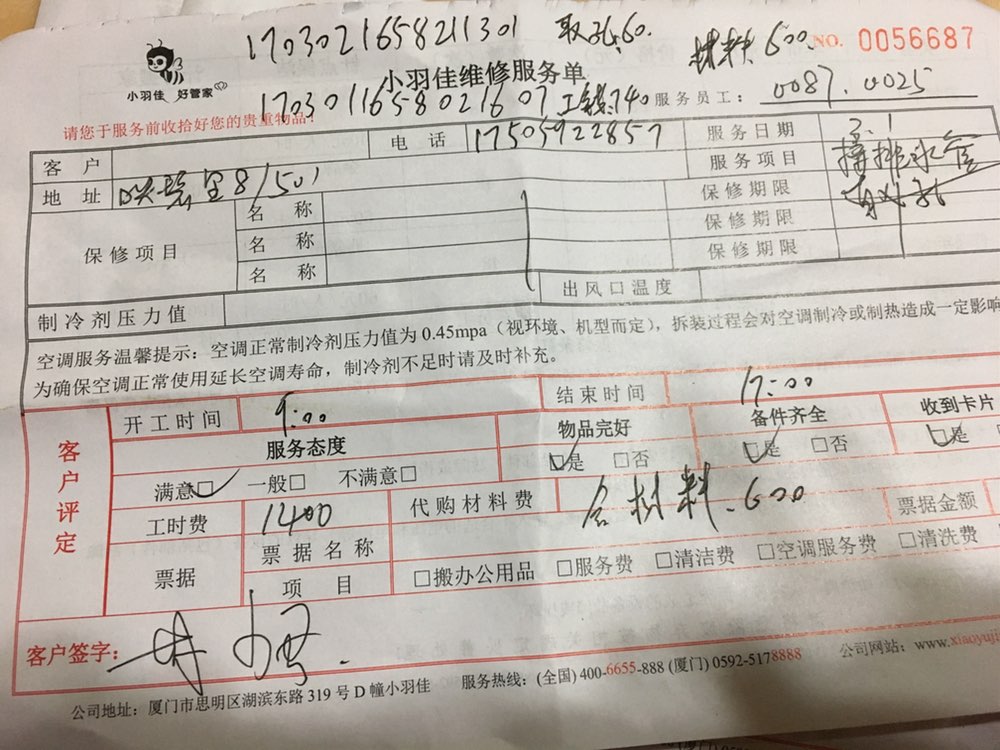 1703021658211301 取36.60. 材料600. NO. 0056687
小羽佳 好管家 小羽佳维修服务单
1703011658021607 工钱740 服务员工: 0087.0025
请您于服务前收拾好您的贵重物品!
客户 电话 17505922857 服务日期 3.1
地址 8/501 服务项目 排水管
保修项目 名称 保修期限
名称 保修期限
名称 保修期限
制冷剂压力值 出风口温度
空调服务温馨提示:空调正常制冷剂压力值为0.45mpa(视环境、机型而定),拆装过程会对空调制冷或制热造成一定影响
为确保空调正常使用延长空调寿命,制冷剂不足时请及时补充。
客户评定 开工时间 9:00 结束时间 17:00
服务态度 物品完好 备件齐全 收到卡片
满意□ 一般□ 不满意□ □是 □否 □是 □否 □是
工时费 1400 代购材料费 含材料.600 票据金额
票据 票据名称 □搬办公用品 □服务费 □清洁费 □空调服务费 □清洗费
项目
客户签字:
公司地址:厦门市思明区湖滨东路319号D幢小羽佳 服务热线:(全国)400-6655-888(厦门)0592-5178888 公司网站:www.xiaoyuj